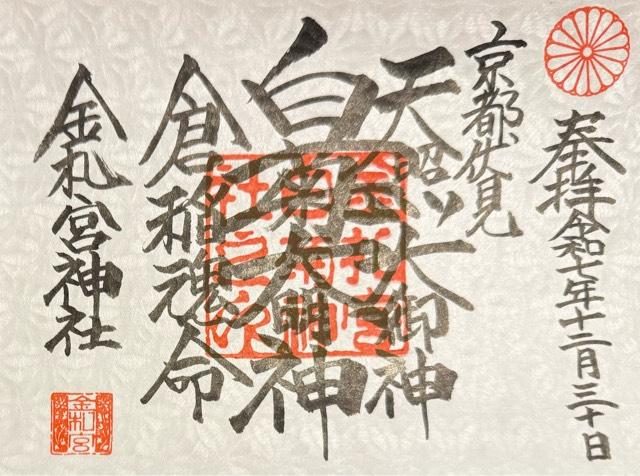 奉拝 令和七年十二月三十日
京都伏見
天照大御神
白菊大明神
倉稲魂命
金札宮神社
金札宮